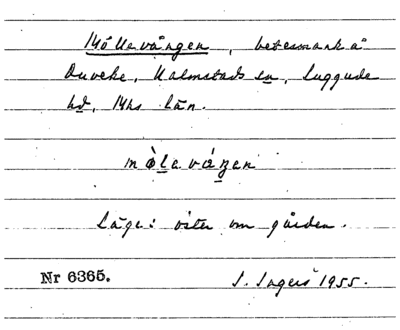 Möllevången, betesmark å
Duveke, Halmstads sn, Luggude
hd, Mhs län.
mòlavåŋan
Läge: öster om gården.
Nr 6365. I. Ingers 1955.